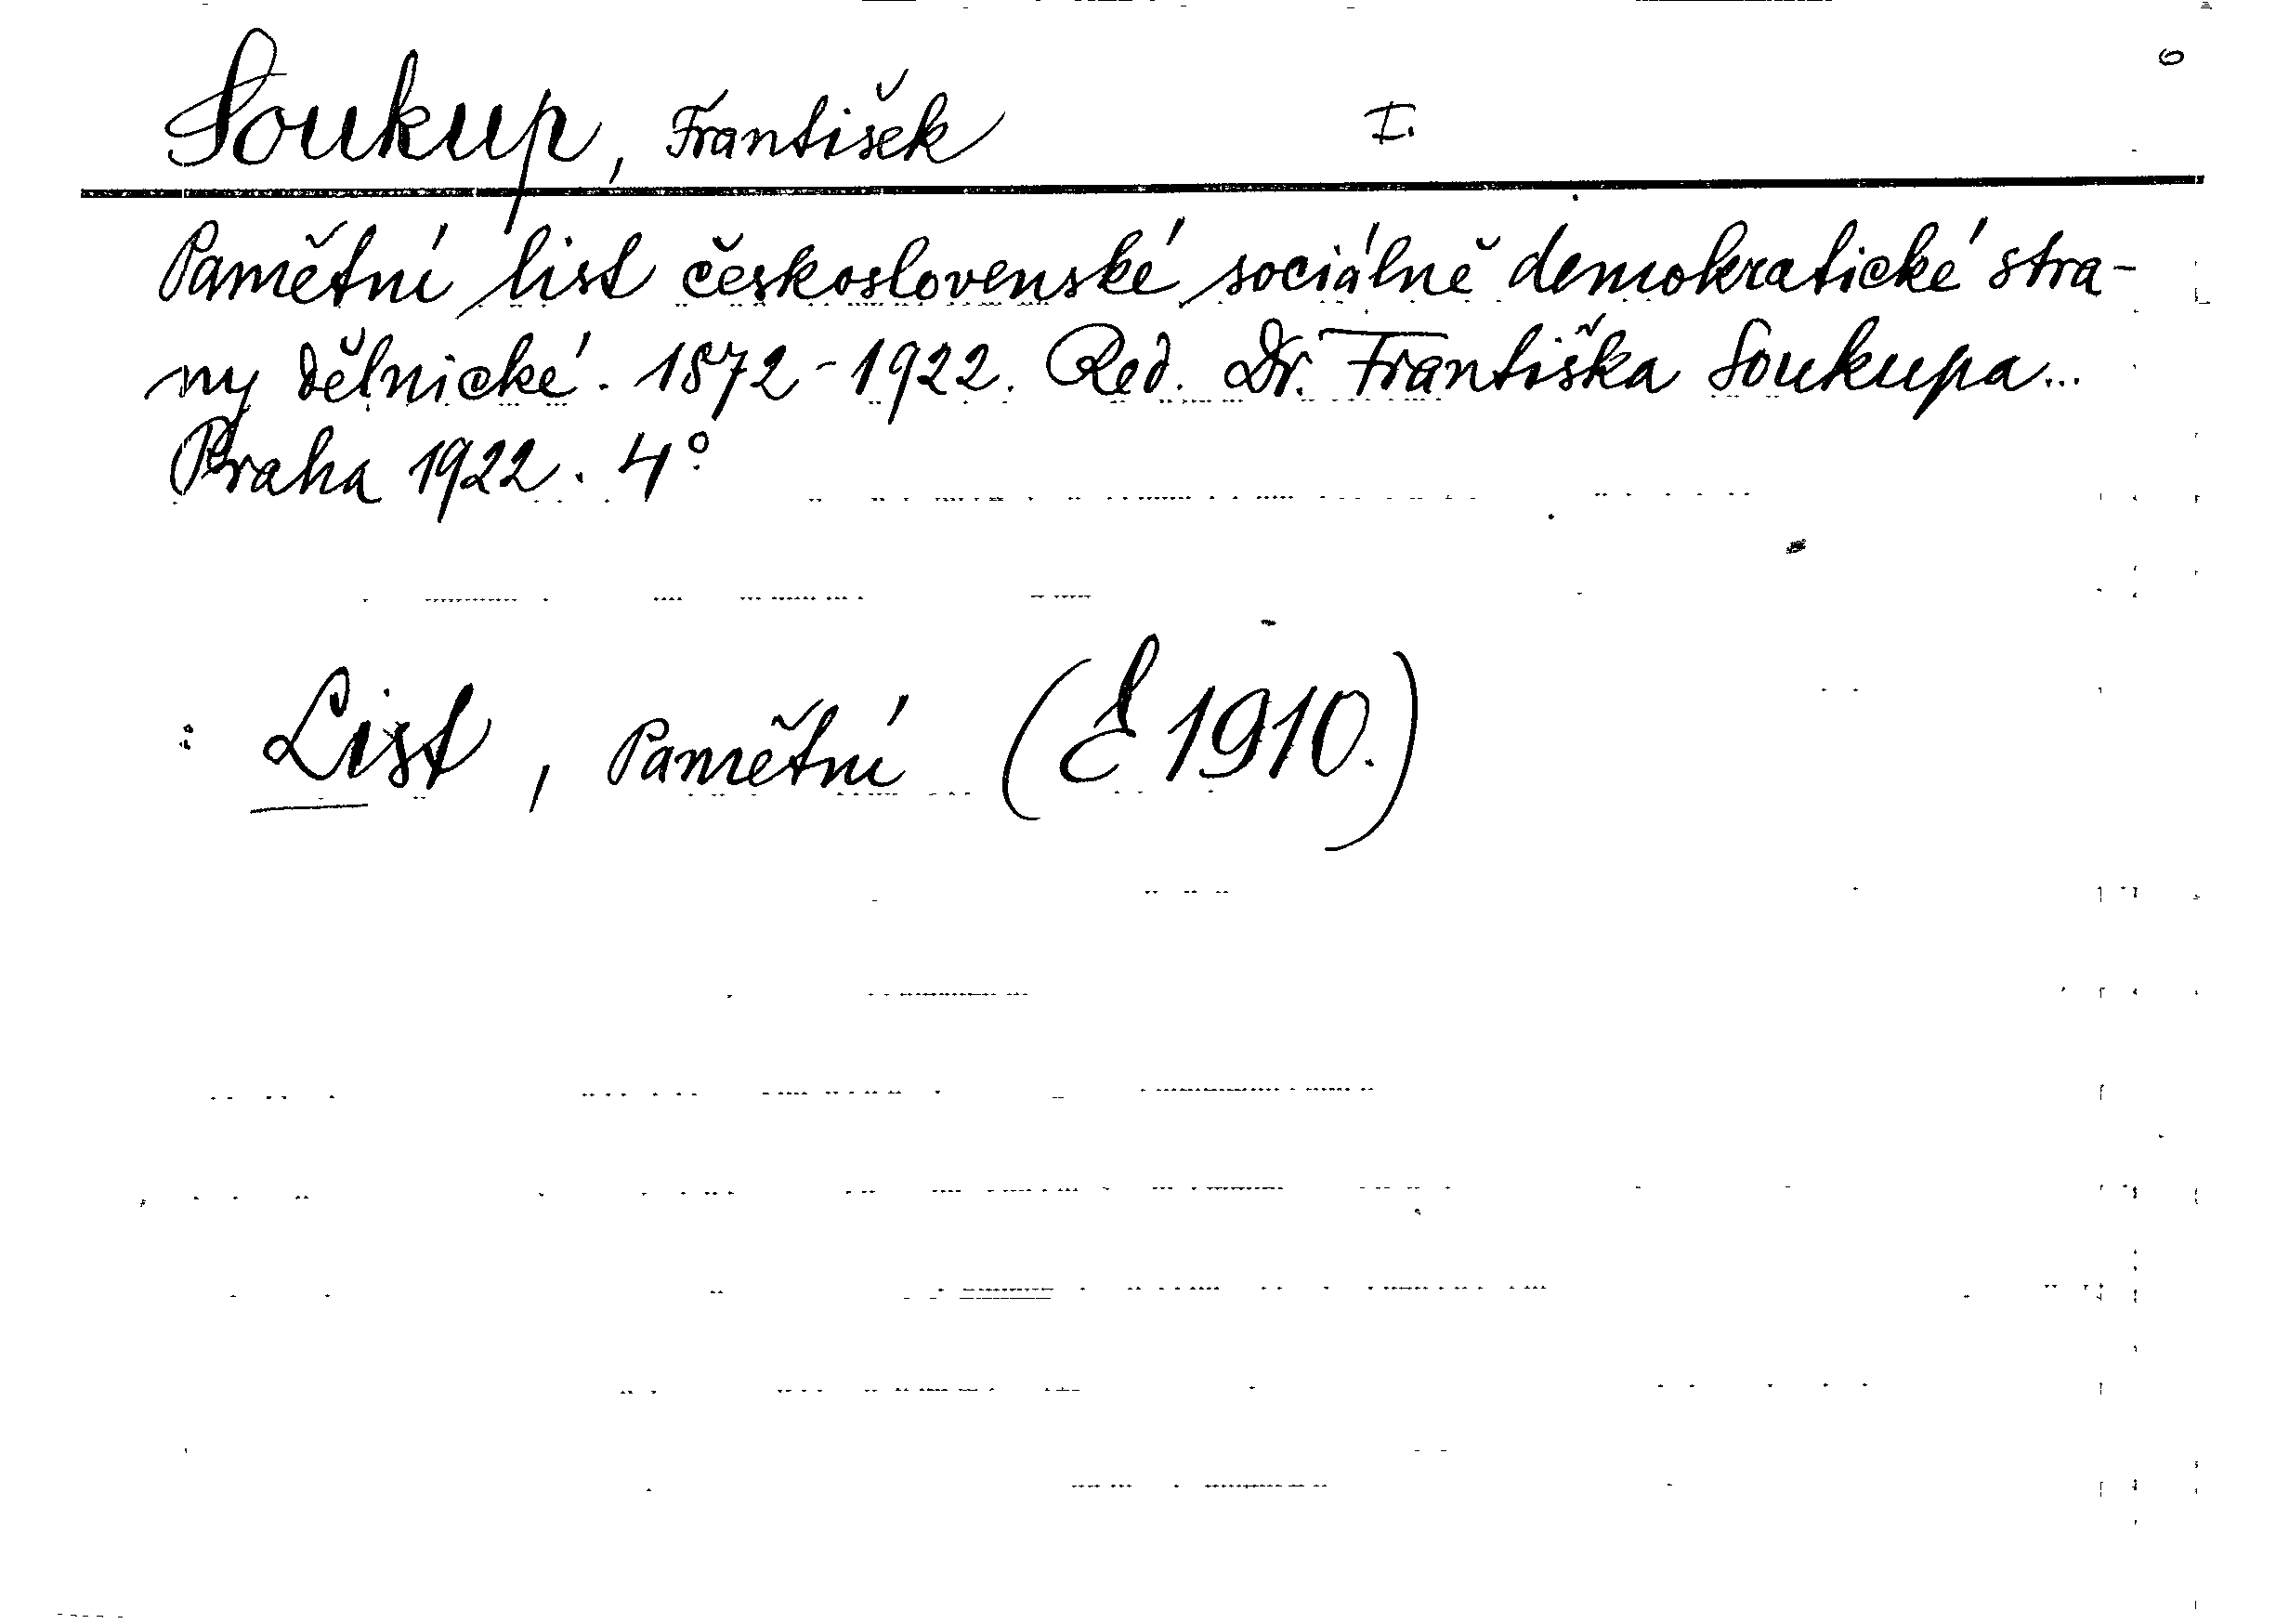 Soukup, František I.
Pamětní list československé sociálně demokratické stra-
ny dělnické. 1872-1922. Red. Dr. Františka Soukupa...
Praha 1922. 4°
: List, Pamětní (E 1910.)